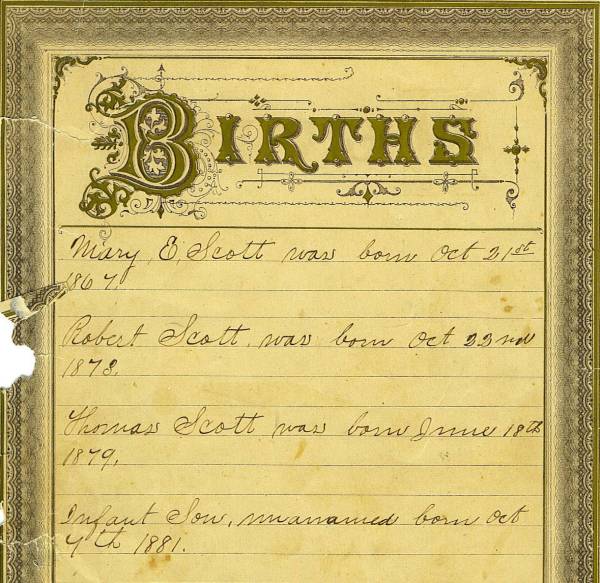 BIRTHS
Mary, E, Scott was born Oct 21st
1867.
Robert Scott, was born Oct 22nd
1873.
Thomas Scott was born June 18th
1879.
Infant Son, unnanamed born Oct
7th 1881.